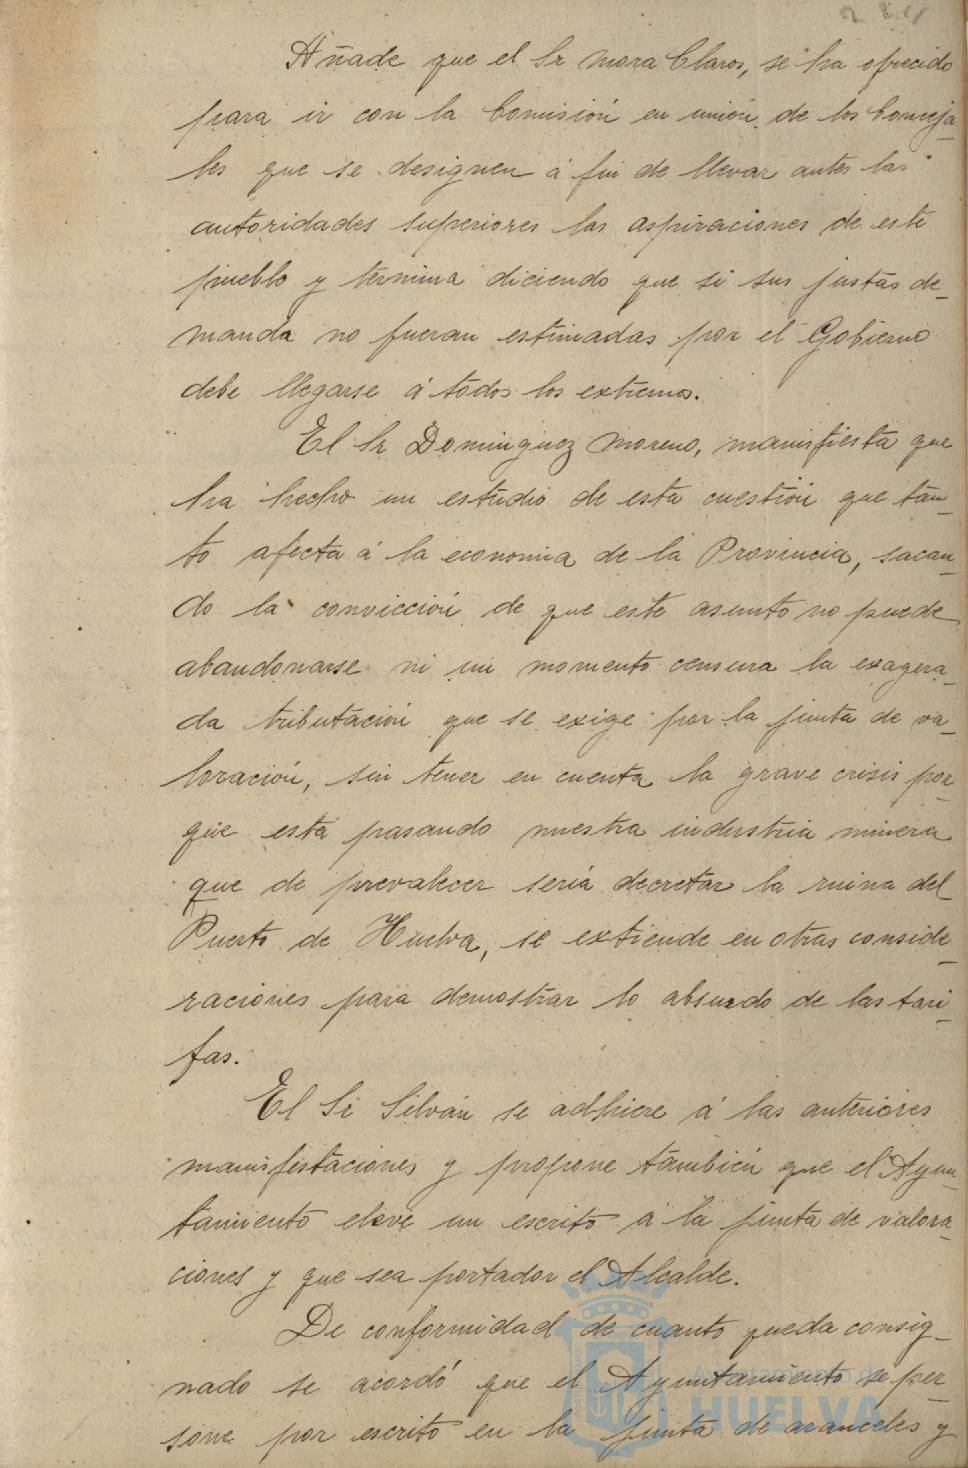 Añade que el Sr Mora Claros, se ha ofrecido
para ir con la Comisión en unión de los Conceja-
les que se designen á fin de llevar antes las
autoridades superiores las aspiraciones de este
pueblo y termina diciendo que si sus justas de-
manda no fueran estimadas por el Gobierno
debe llegarse á todos los extremos.
El Sr Dominguez Moreno, manisfiesta que
ha hecho un estudio de esta cuestión que tan-
to afecta á la economia de la Provincia, sacan-
do la convicción de que este asunto no puede
abandonarse ni un momento censura la exagera-
da tributación que se exige por la junta de va-
loración, sin tener en cuenta la grave crisis por-
que está pasando nuestra industria minera
que de prevalecer seria decretar la ruina del
Puerto de Huelva, se extiende en otras conside-
raciones para demostrar lo absurdo de las tari-
fas.
El Sr Silván se adhiere á las anteriores
manisfestaciones y propone también que el Ayun-
tamiento eleve un escrito á la junta de valora-
ciones y que sea portador el Alcalde.
De conformidad de cuanto queda consig-
nado se acordó que el Ayuntamiento se per-
sone por escrito en la junta de aranceles y
Ayuntamiento de
HUELVA